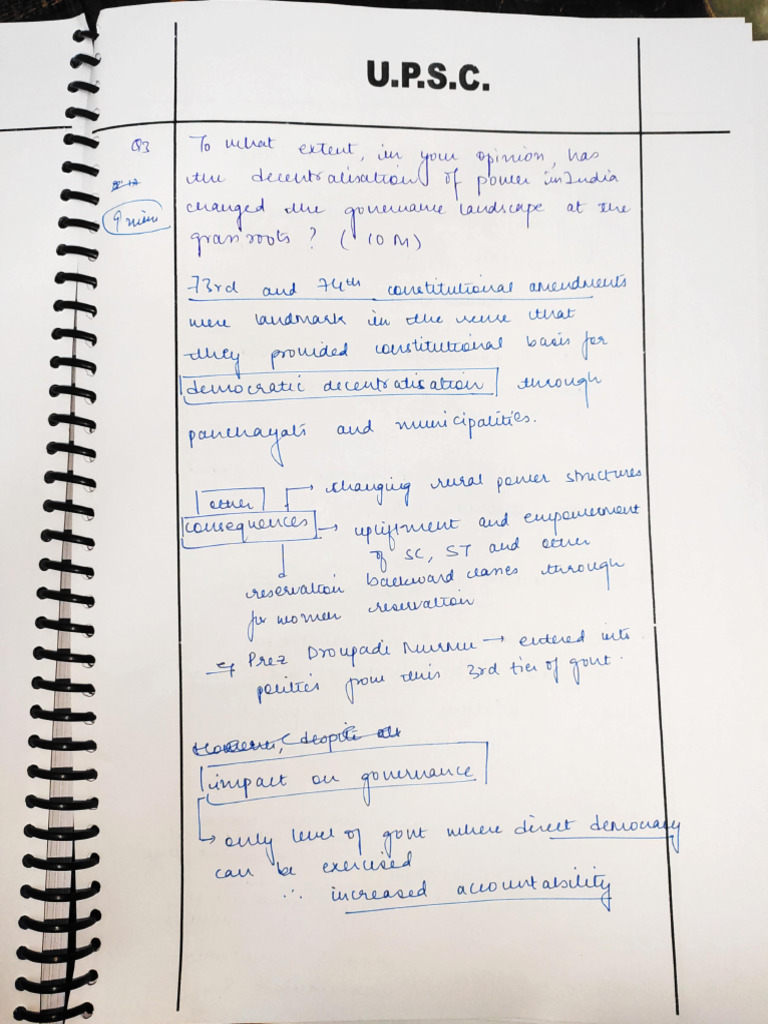 U.P.S.C.
Q3
9 mins
To what extent, in your opinion, has
the decentralisation of power in India
changed the governance landscape at the
grassroots? (10M)
73rd and 74th constitutional amendments
were landmark in the sense that
they provided constitutional basis for
democratic decentralisation through
panchayats and municipalities.
other
consequences
→ changing rural power structures
→ upliftment and empowerment
of SC, ST and other
backward classes through
reservation
reservation
for women
⇒ Prez Droupadi Murmu → entered into
politics from this 3rd tier of govt.
However, despite
impact on governance
→ only level of govt where direct democracy
can be exercised
∴ increased accountability